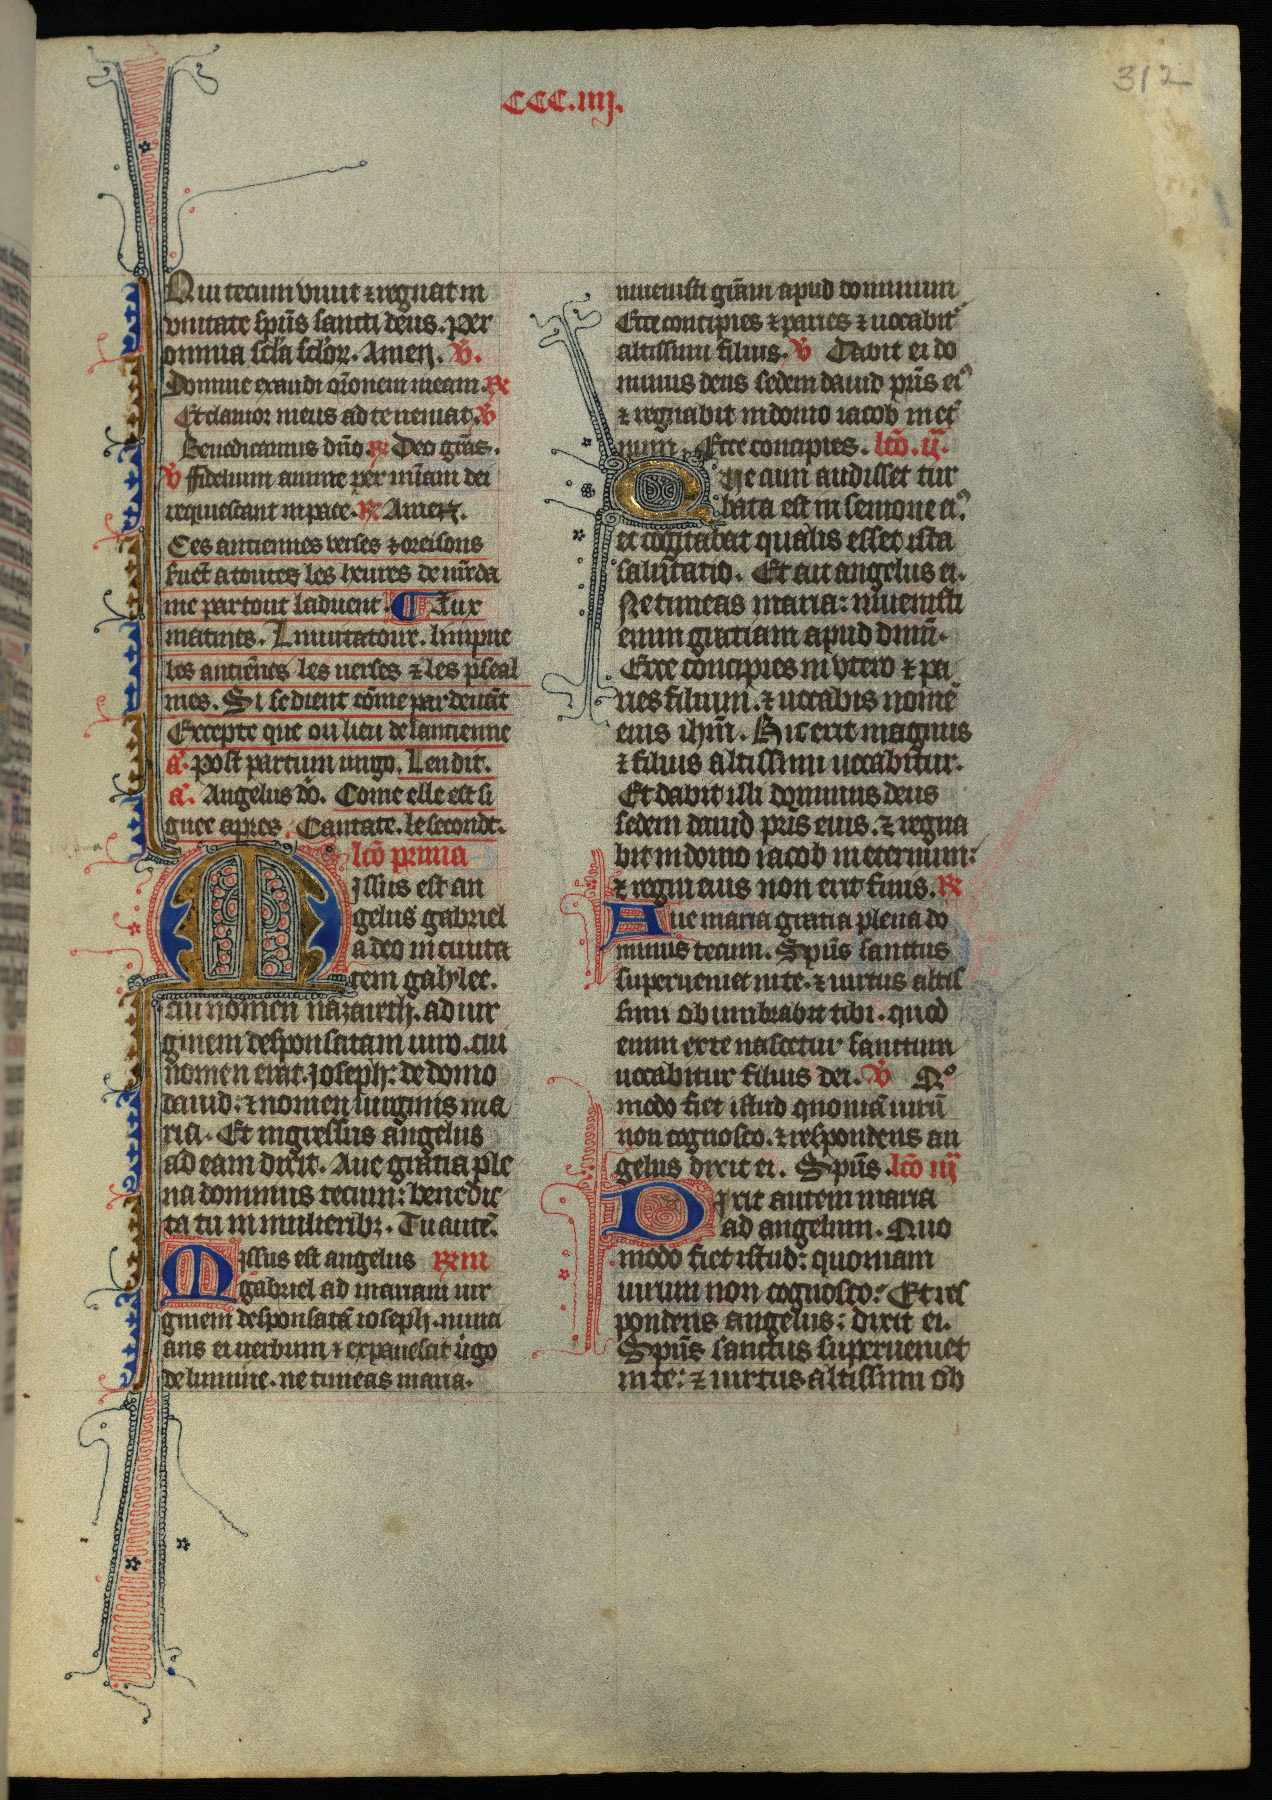 312
CCC.iiij.
Qui tecum viuit ⁊ regnat in
vnitate sp̄us sancti deus. per
omnia sc̄la sc̄lor̄. Amen. ℣.
Domine exaudi or̄onem meam. ℟
Et clamor meus ad te ueniat. ℣
Benedicamus dn̄o. ℟ Deo gr̄as.
℣ fidelium anime per mi̅am dei
requiescant in pace. ℟ Amen.
Ces anciennes verses ⁊ oreisons
me partout laduent. ¶ Aux
matines. Linuitatour. limpne
les antiēnes les uerses ⁊ les pseal
mes. Si se dient cōme par deuāt
Excepte que ou lieu de lantienne
a᷒. post partum uirgo. Len dit.
a᷒. Angelus dn̄i. Come elle est si
gnee apres. Cantate. le secondt.
lc̄o prima
Missus est an
gelus gabriel
a deo in ciuita
tem galylee.
cui nomen nazareth. ad uir
ginem desponsatam uiro. cui
nomen erat. ioseph: de domo
dauid: ⁊ nomen uirginis ma
ria. Et ingressus angelus
ad eam dixit. Aue gratia ple
na dominus tecum: benedic
ta tu in mulieribꝫ. Tu autē.
Missus est angelus ℟
gabriel ad mariam uir
ginem desponsatā ioseph. nunci
ans ei uerbum ⁊ expauescit ùgo
de lumine. ne timeas maria.
inuenisti gr̄am apud dominum
Ecce concipies ⁊ paries ⁊ uocabit᷒
altissimi filius. ℣ Dabit ei do
minus deus sedem dauid pr̄is ei᷒
⁊ regnabit in domo iacob in et͛
num. Ecce concipies. lc̄o. ij.
Que cum audisset tur
bata est in sermone ei᷒.
et cogitabat qualis esset ista
salutatio. Et ait angelus ei.
Ne timeas maria: inuenisti
enim gratiam apud dn̄m̄.
Ecce concipies in vtero ⁊ pa
ries filium. ⁊ uocabis nomē
eius ih̄m. Hic erit magnus
⁊ filius altissimi uocabitur.
Et dabit illi dominus deus
sedem dauid pr̄is eius. ⁊ regna
bit in domo iacob in eternum:
⁊ regni eius non erit finis. ℟
Aue maria gratia plena do
minus tecum. Sp̄us sanctus
superueniet in te. ⁊ uirtus altis
simi obumbrabit tibi. quod
enim ex te nascetur sanctum
uocabitur filius dei. ℣ Qͦ
modo fiet istud quoniā uirū
non cognosco. ⁊ respondens an
gelus dixit ei. Sp̄us. lc̄o iij
Dixit autem maria
ad angelum. Quo
modo fiet istud: quoniam
uirum non cognosco. Et res
pondens angelus: dixit ei.
Sp̄us sanctus superueniet
in te: ⁊ uirtus altissimi ob